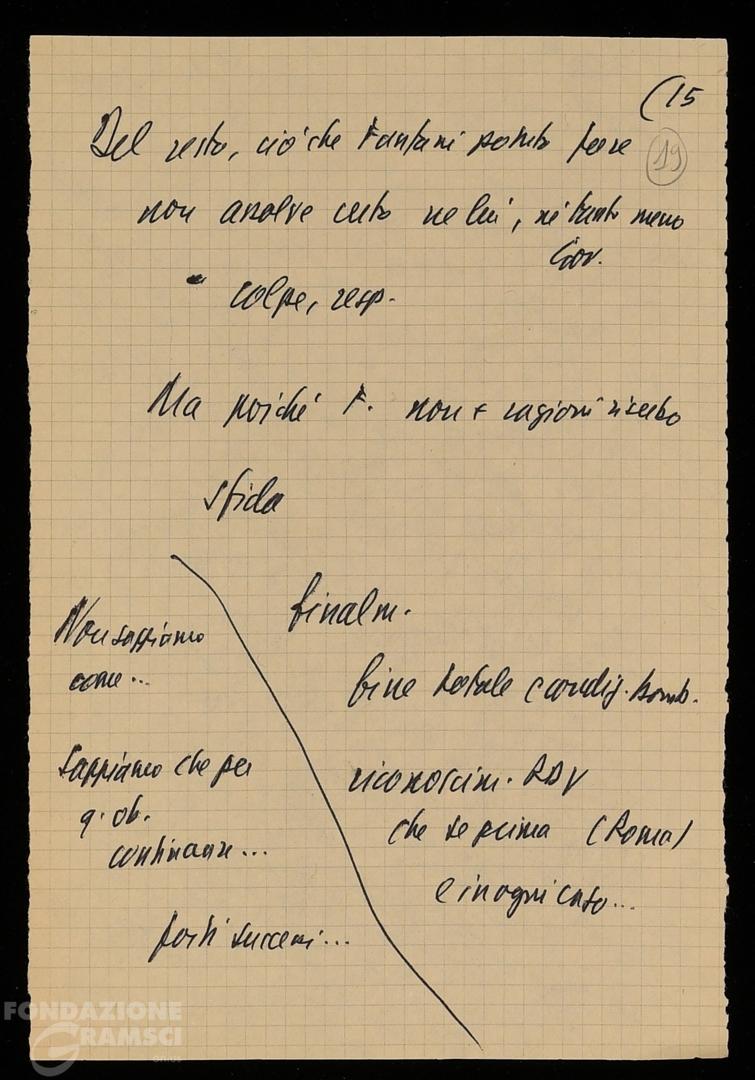 (15
19
Del resto, ciò che Fanfani potuto fare
non assolve certo nè lui, nè tanto meno
Gov.
colpe, resp.
Ma poiché F. non + ragioni riserbo
sfida
finalm.
Non sappiamo
come...
fine totale e condiz. bomb.
Sappiamo che per
q. ob.
continuare...
riconoscim. RDV
che se prima (Roma)
e in ogni caso...
forti successi...
FONDAZIONE
GRAMSCI
onlus